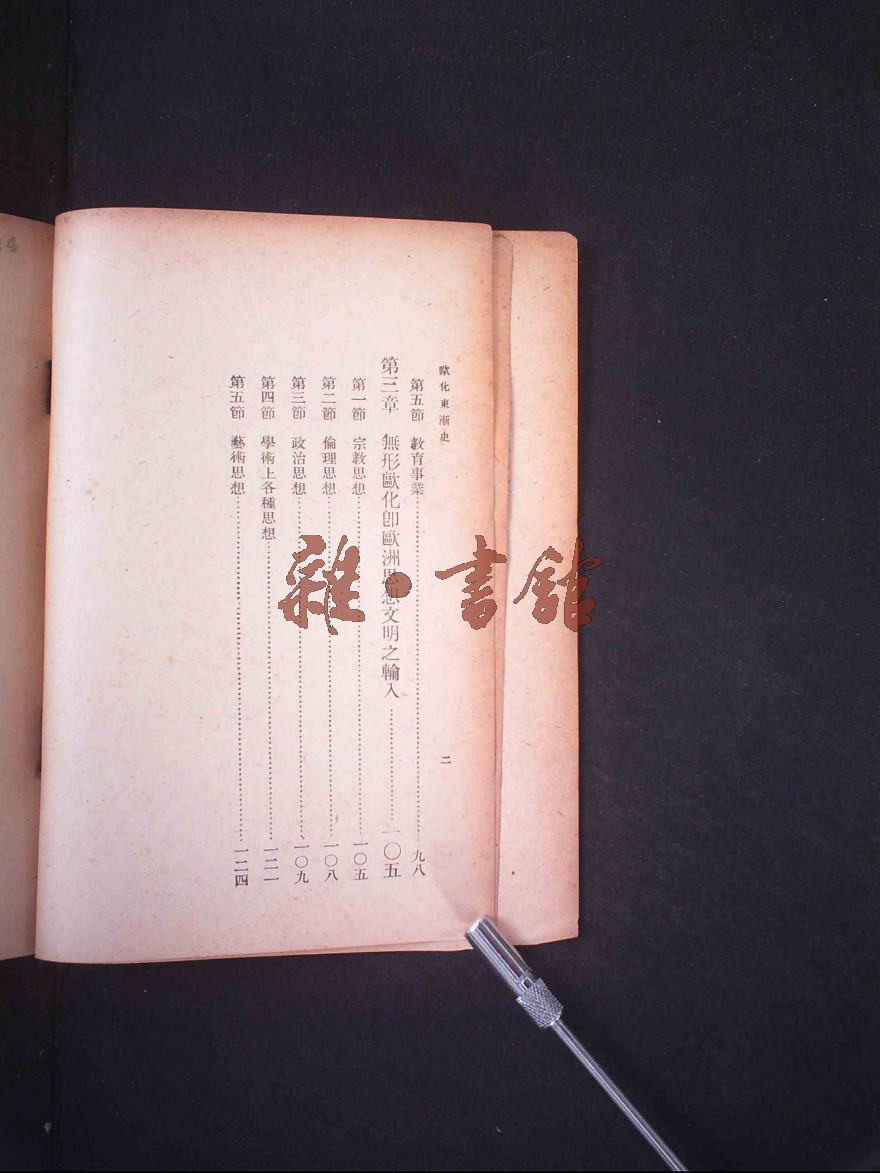 歐化東漸史
二
第五節 教育事業……九八
第三章 無形歐化即歐洲思想文明之輸入……一〇五
第一節 宗教思想……一〇五
第二節 倫理思想……一〇八
第三節 政治思想……一〇九
第四節 學術上各種思想……一二一
第五節 藝術思想……一二四
雜·書館
4